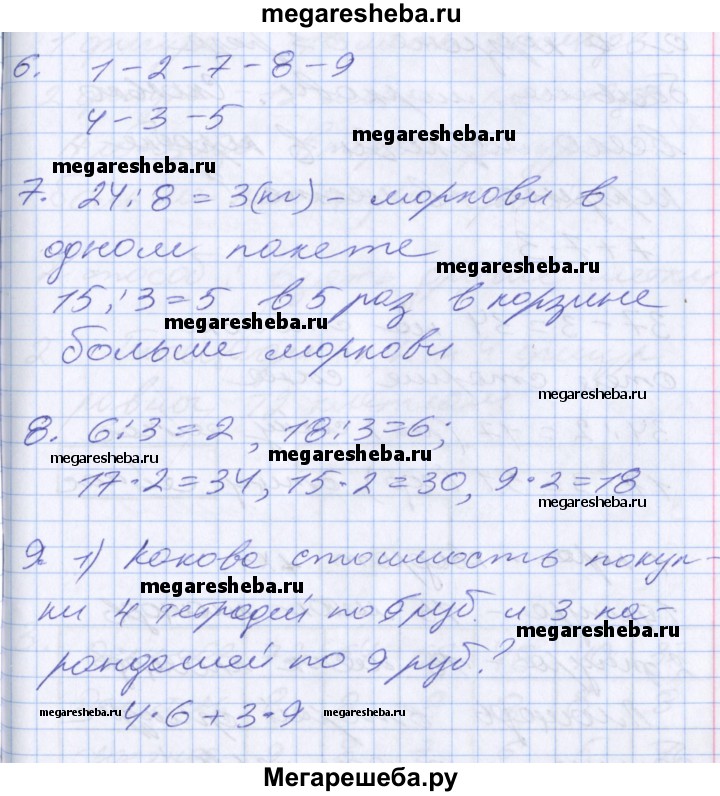 megaresheba.ru
6. 1-2-7-8-9
4-3-5
megaresheba.ru
megaresheba.ru
7. 24:8=3(кг) - моркови в
одном пакете
megaresheba.ru
15:3=5 в 5 раз в корзине
megaresheba.ru
больше моркови
megaresheba.ru
8. 6:3=2, 18:3=6;
megaresheba.ru megaresheba.ru
17·2=34, 15·2=30, 9·2=18
megaresheba.ru
9. 1) Какова стоимость покуп-
megaresheba.ru
ки 4 тетрадей по 6 руб. и 3 ка-
megaresheba.ru
рандашей по 9 руб.?
megaresheba.ru 4·6+3·9 megaresheba.ru
Мегарешеба.ру